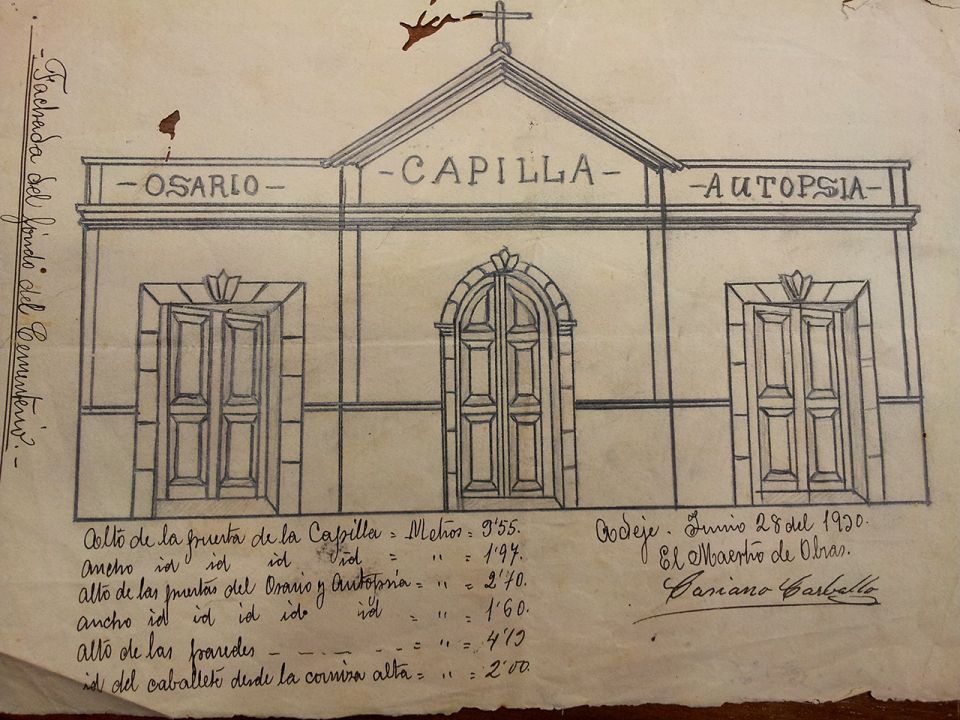 - Fachada del fondo del Cementerio. -
- OSARIO -
- CAPILLA -
- AUTOPSIA -
Alto de la puerta de la Capilla = Metros = 3'55.
ancho id id id id = " = 1'97.
alto de las puertas del Osario y Autopsia = " = 2'70.
ancho id id id id id = " = 1'60.
alto de las paredes - - - - - = " = 4'13
id del caballete desde la corniza alta = " = 2'00.
Adeje. Junio 28 del 1930.
El Maestro de Obras.
Casiano Carballo